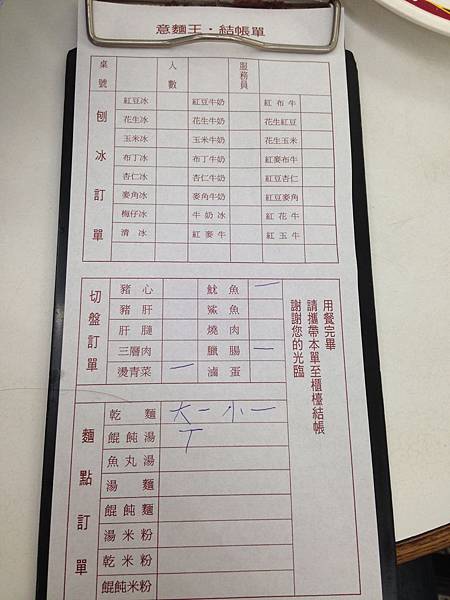 意麵王·結帳單
桌號 人數 服務員
刨冰訂單
紅豆冰 紅豆牛奶 紅布牛
花生冰 花生牛奶 花生紅豆
玉米冰 玉米牛奶 花生玉米
布丁冰 布丁牛奶 紅麥布牛
杏仁冰 杏仁牛奶 紅豆杏仁
麥角冰 麥角牛奶 紅豆麥角
梅仔冰 牛奶冰 紅花牛
清冰 紅麥牛 紅玉牛
切盤訂單
豬心 魷魚 一
豬肝 鯊魚
肝腱 燒肉
三層肉 臘腸 一
燙青菜 一 滷蛋
用餐完畢
請攜帶本單至櫃檯結帳
謝謝您的光臨
麵點訂單
乾麵 大一小一
餛飩湯 丅
魚丸湯
湯麵
餛飩麵
湯米粉
乾米粉
餛飩米粉